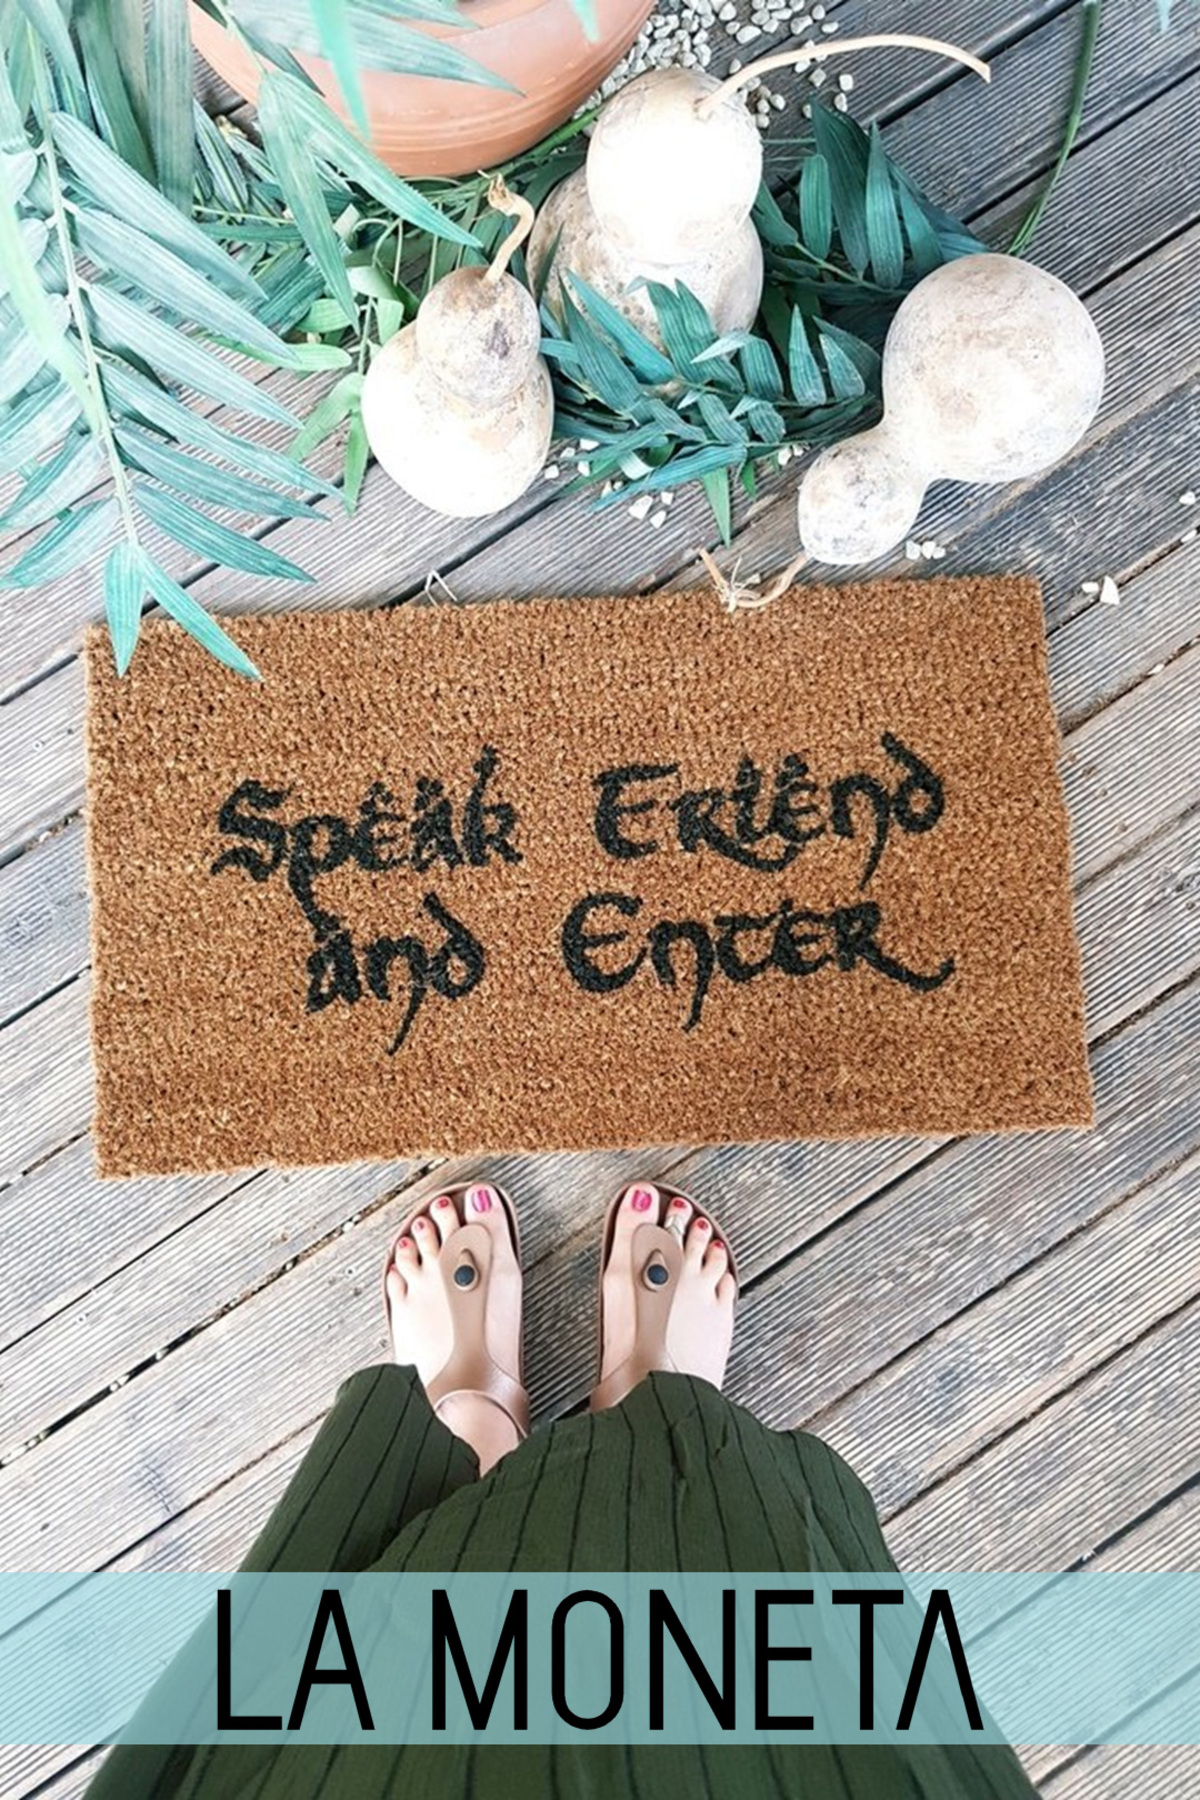 Speak Friend
and Enter
LA MONETA